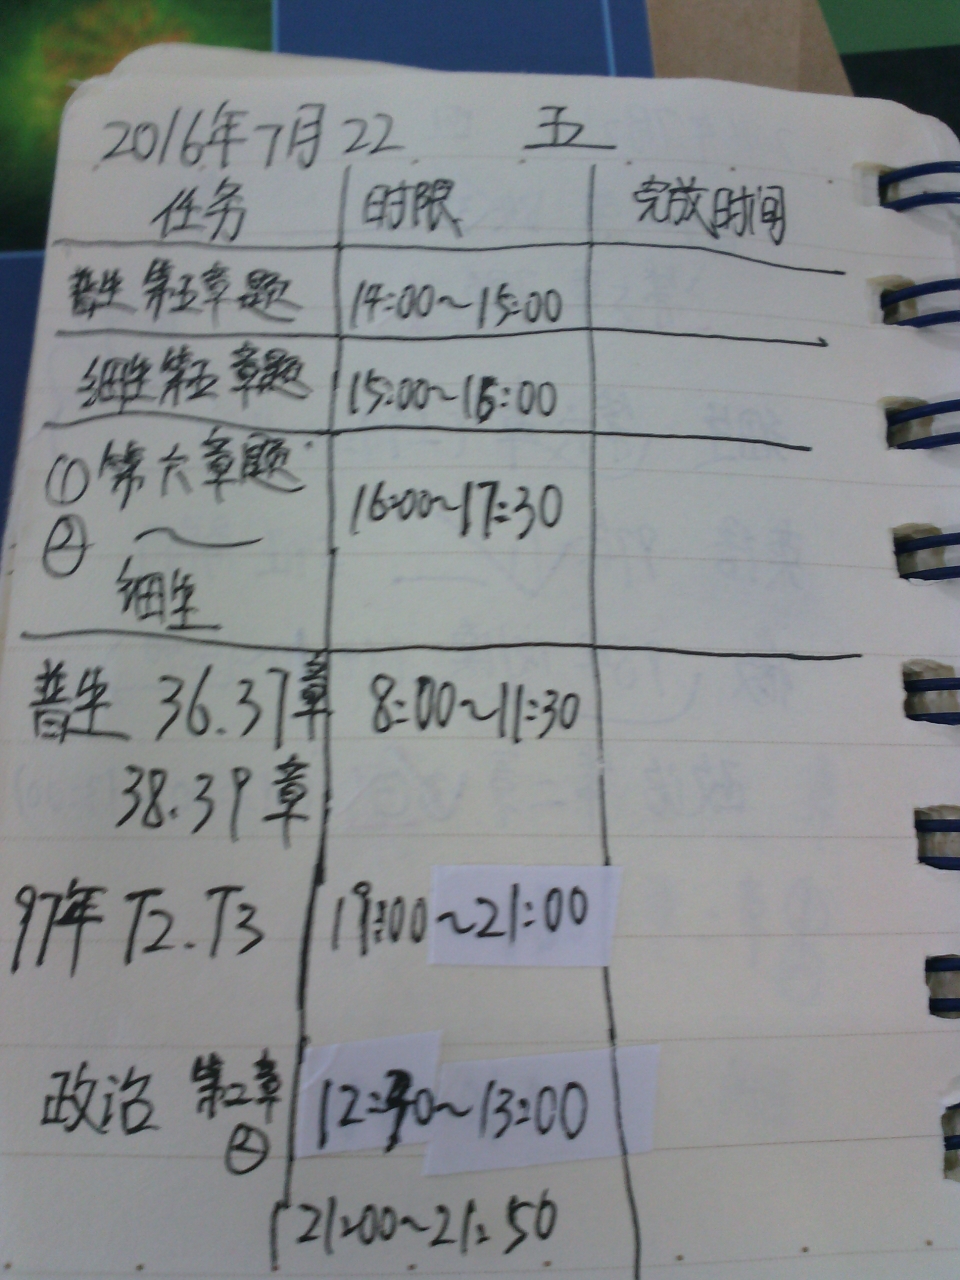 2016年7月22 五
任务 时限 完成时间
普生 第五章题 14:00~15:00
细生 第五章题 15:00~16:00
① 第六章题 16:00~17:30
② ~
细生
普生 36.37章 8:00~11:30
38.39章
97年 T2.T3 19:00~21:00
政治 第二章 12:30~13:00
②
21:00~21:50